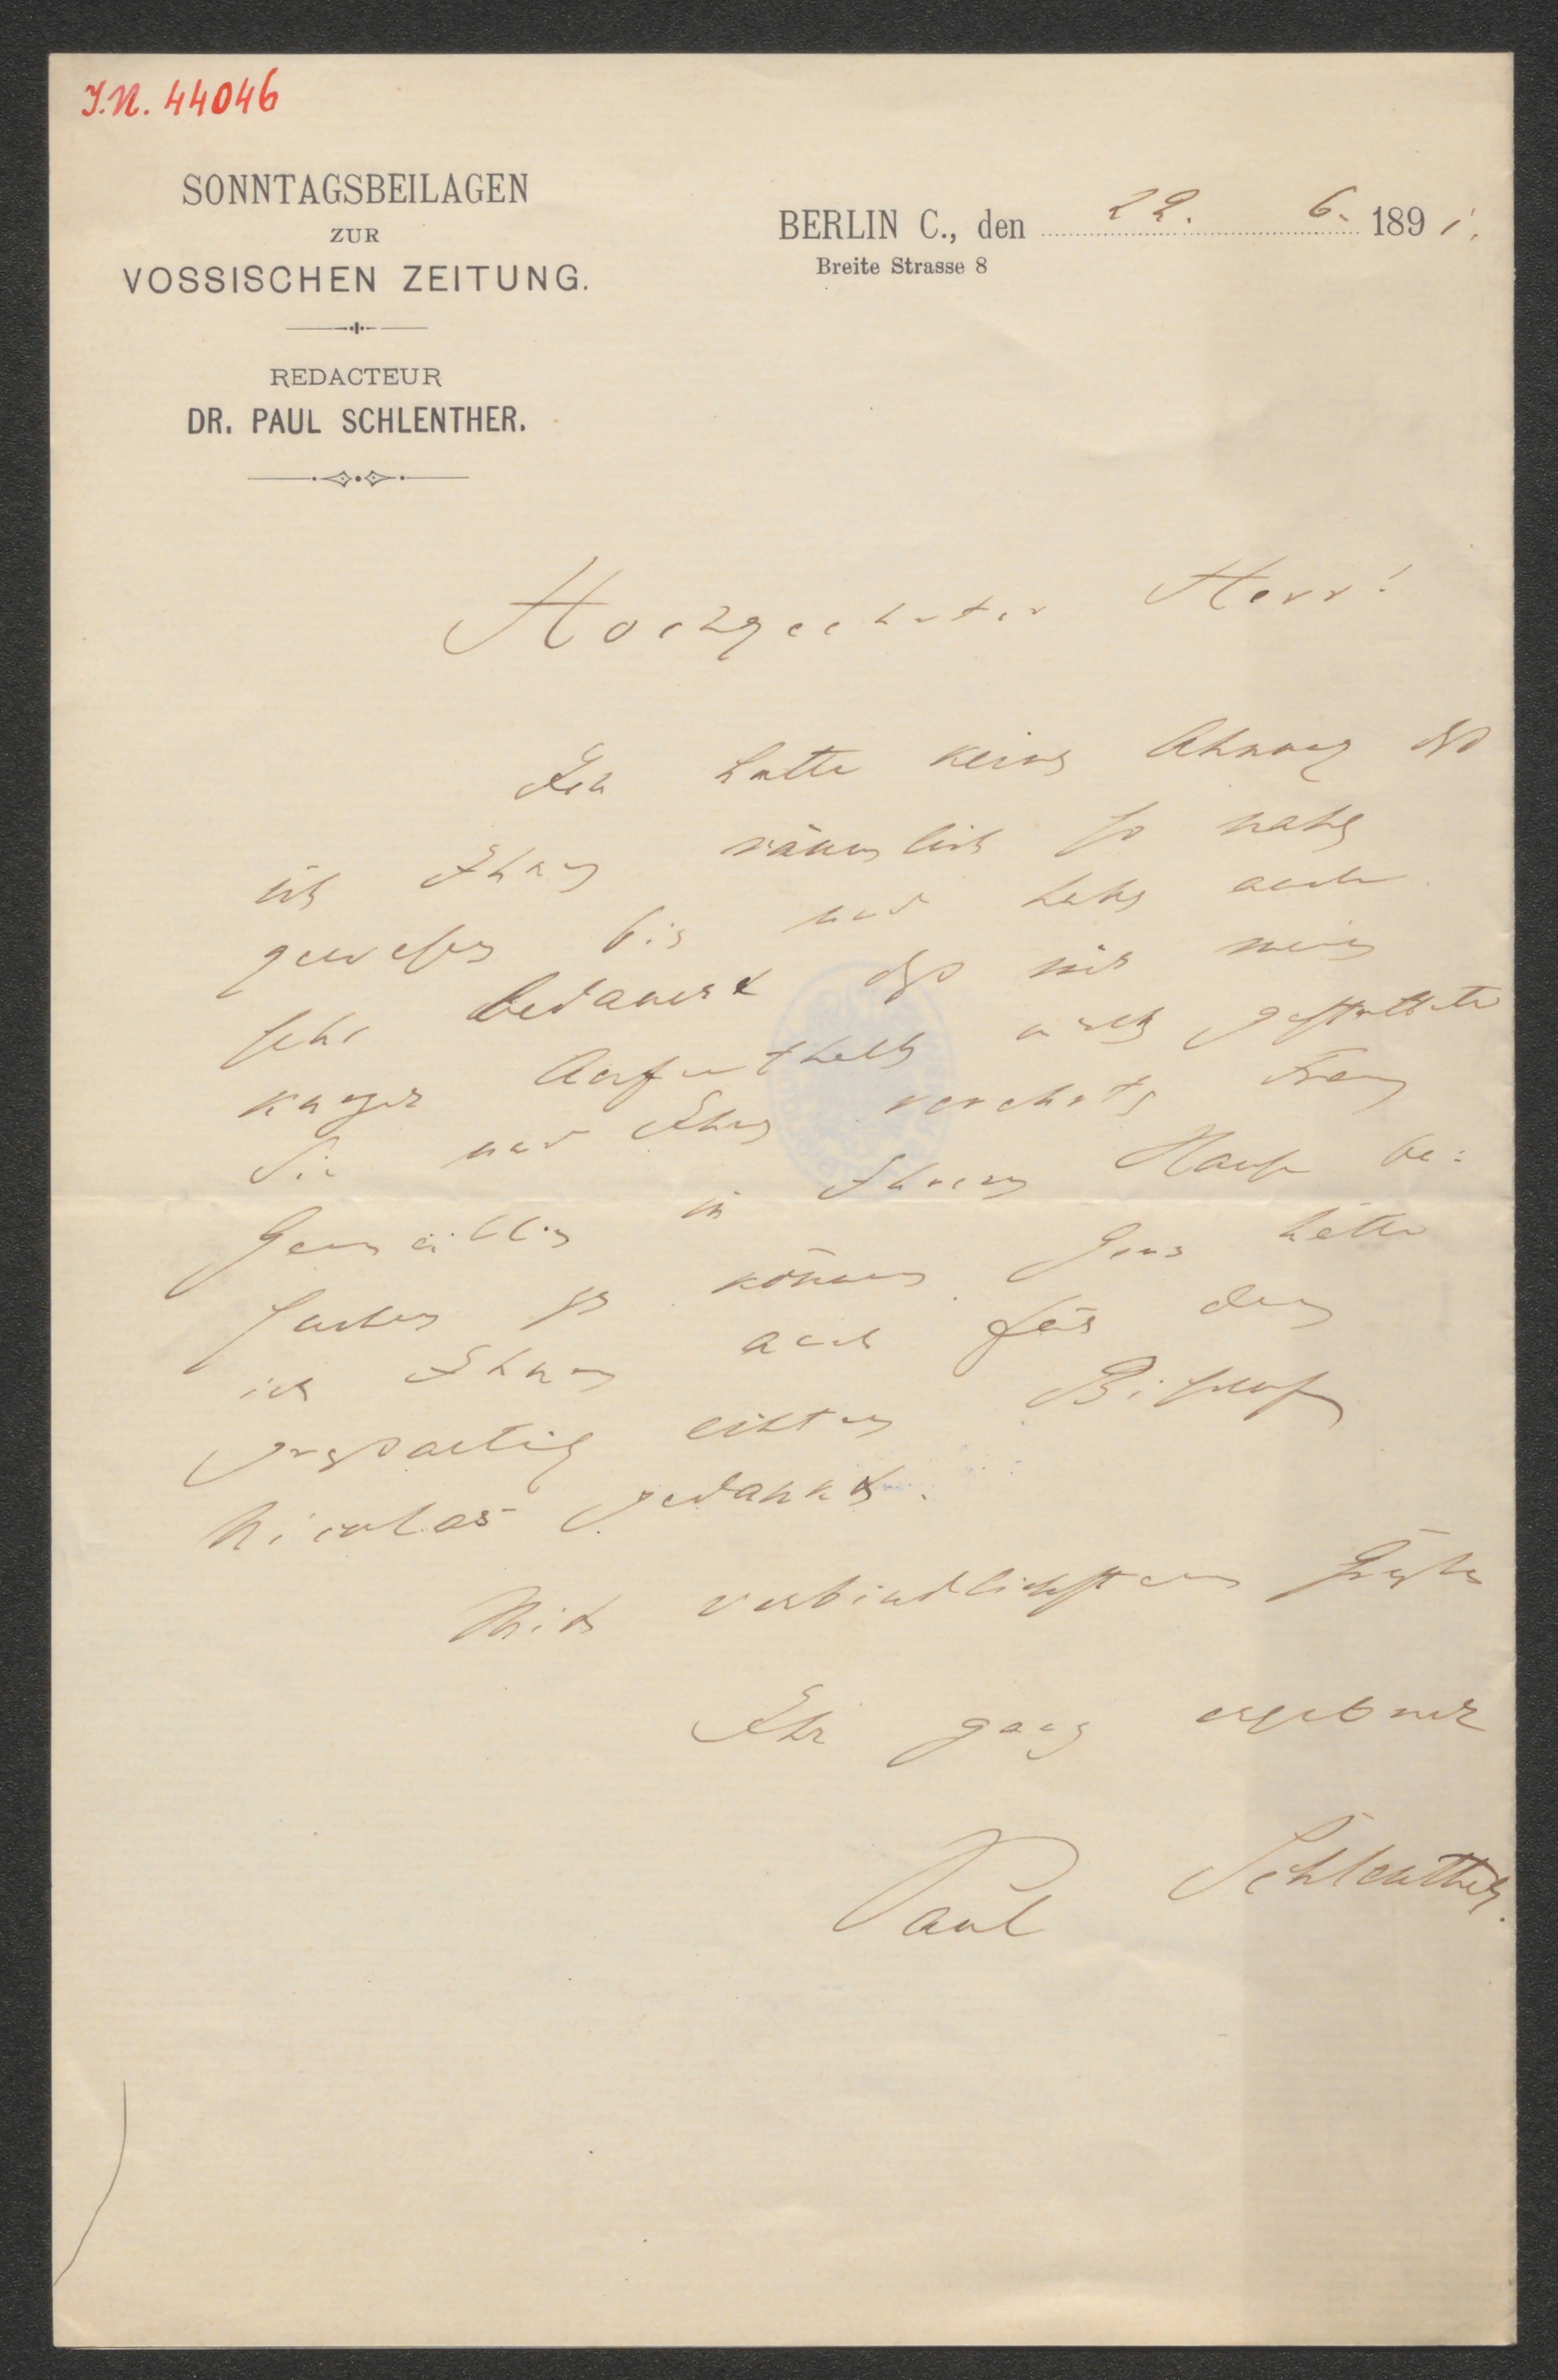 I.N. 44046
SONNTAGSBEILAGEN
ZUR
VOSSISCHEN ZEITUNG.
REDACTEUR
DR. PAUL SCHLENTHER.
BERLIN C., den 22. 6. 1891.
Breite Strasse 8
Hochgeehrter Herr!
Ich hatte keine Ahnung daß
ich Ihnen räumlich so nahe
gewesen bin und habe auch
sehr bedauert daß mir mein
kurzer Aufenthalt nicht gestattete
Sie und Ihre verehrte Frau
Gemahlin in Ihrem Hause be-
suchen zu können. Gern hätte
ich Ihnen auch für den
großartig echten Bischof
Nicolas gedankt.
Mit verbindlichstem Gruße
Ihr ganz ergebener
Paul Schlenther.